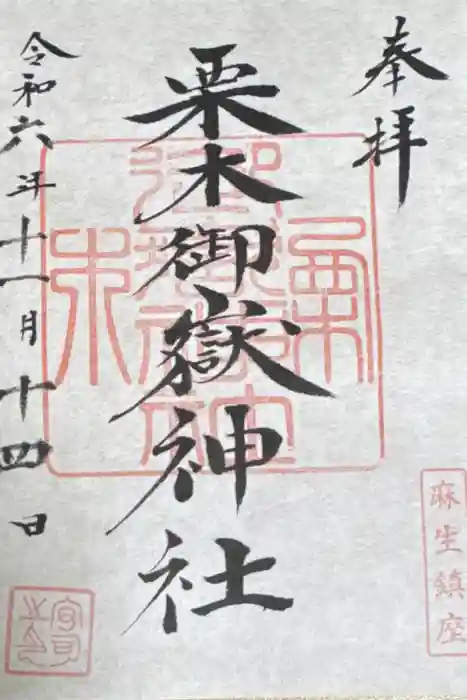 奉拝
麻生鎮座
栗木御嶽神社
令和六年十一月十四日
宮司之印